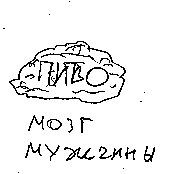 ПИВО
МОЗГ
МУЖЧИНЫ